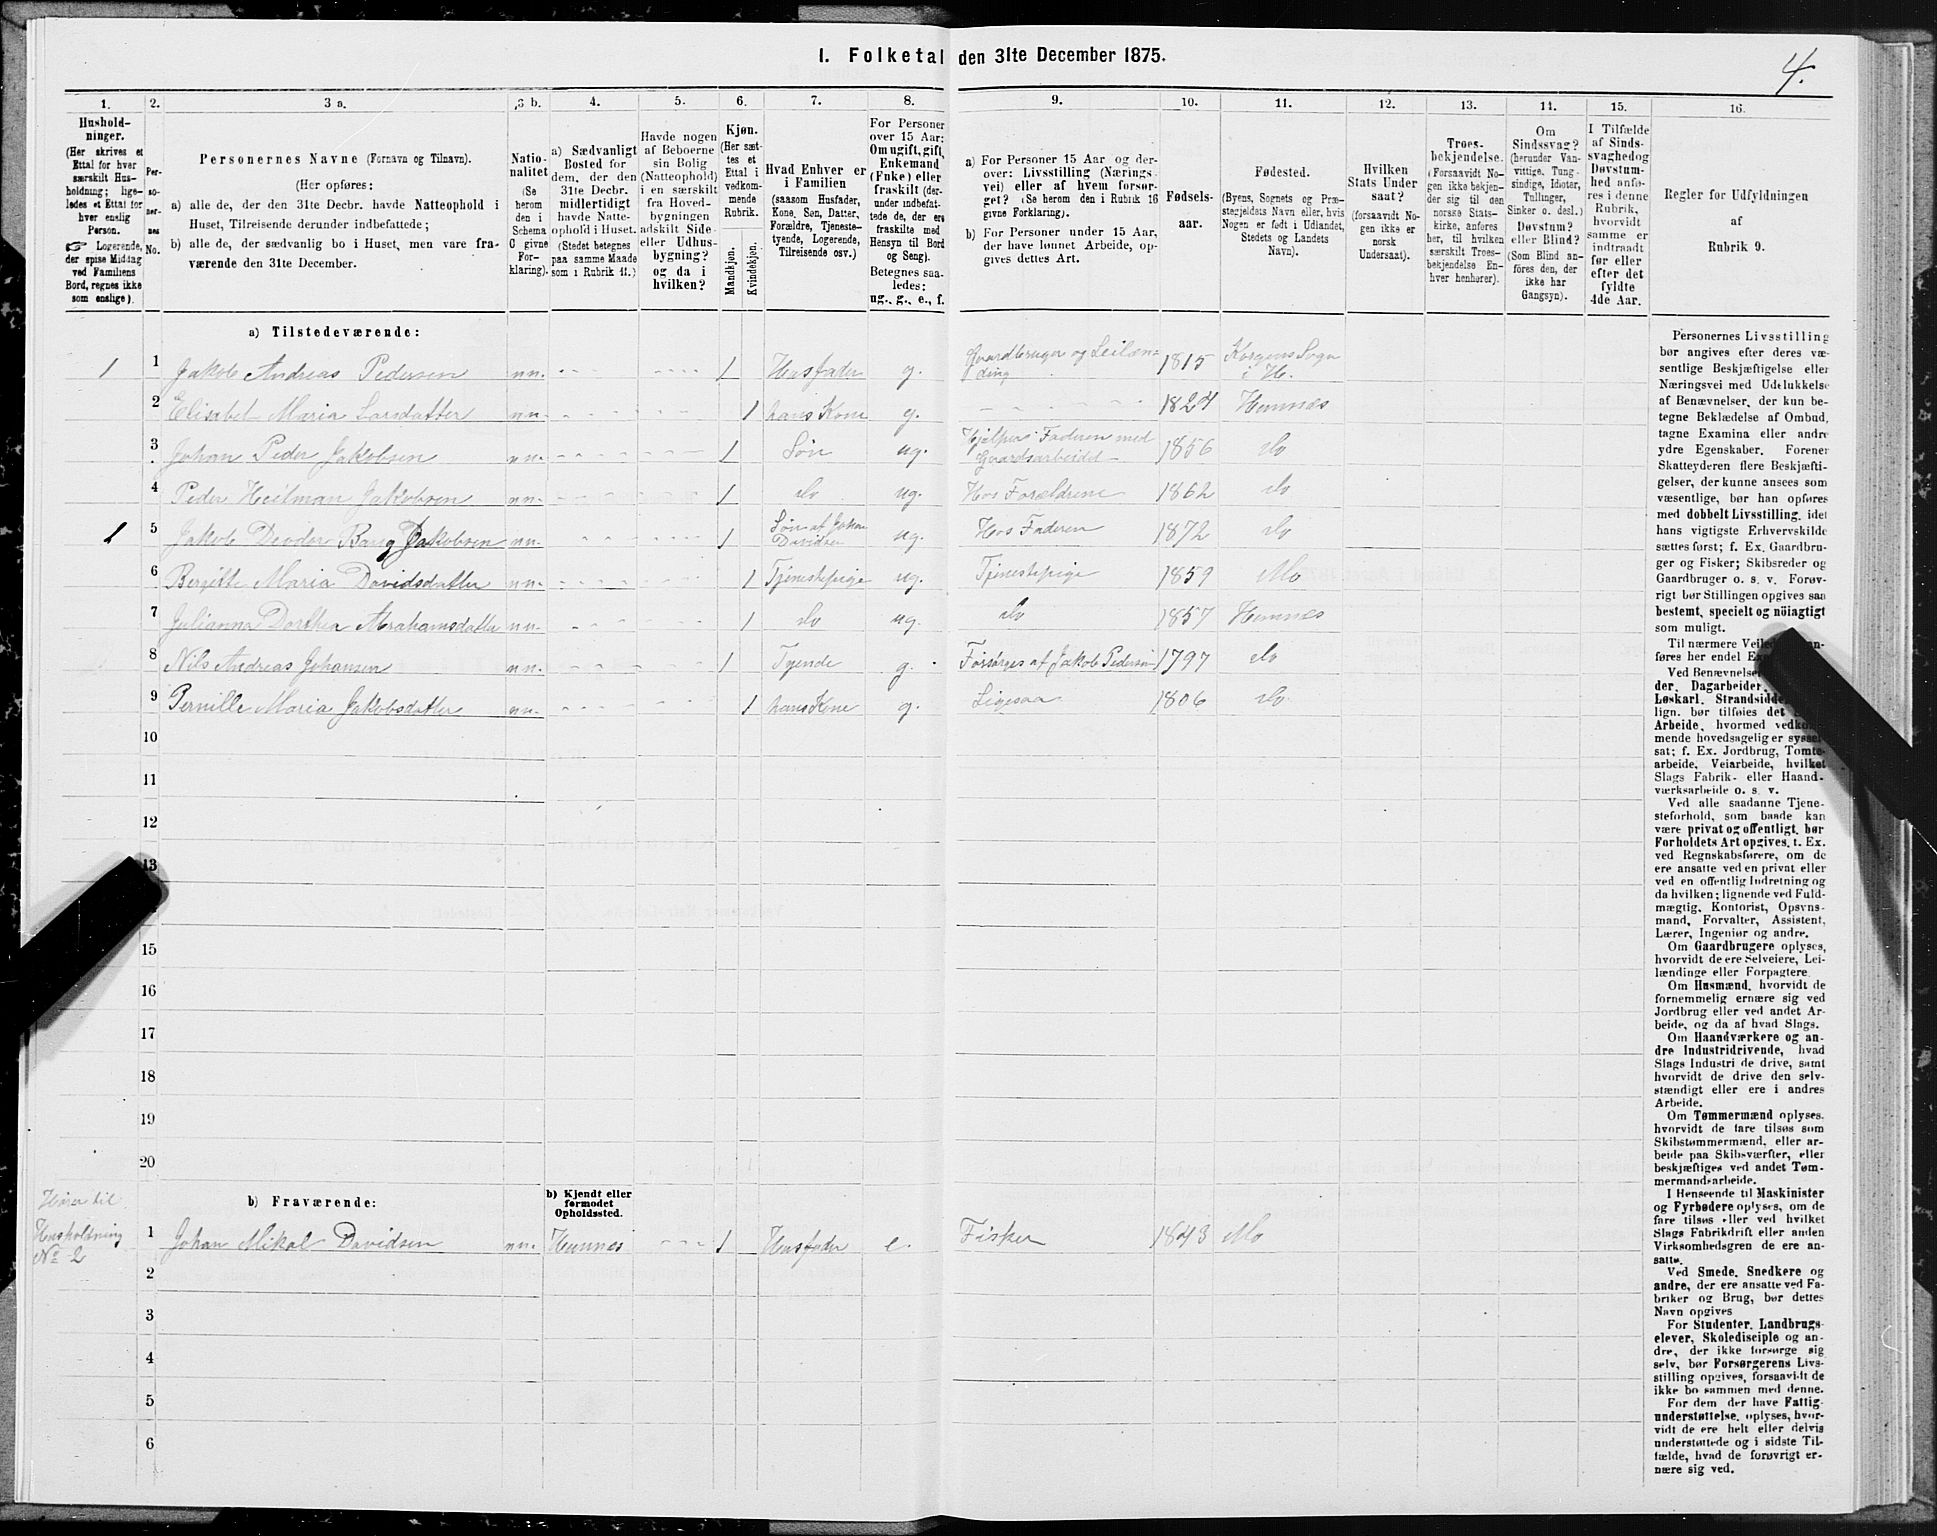 I. Folketal den 31te December 1875.
4.
1. 2. 3 a. 3 b. 4. 5. 6. 7. 8. 9. 10. 11. 12. 13. 14. 15. 16.
Hushold-
ninger.
(Her skrives et
Ettal for hver
særskilt Hus-
holdning; lige-
ledes et Ettal for
hver enslig
Person.
☞ Logerende,
der spise Middag
ved Familiens
Bord, regnes ikke
som enslige).
Per-
so-
ner-
nes
No.
Personernes Navne (Fornavn og Tilnavn).
(Her opføres:
a) alle de, der den 31te Decbr. havde Natteophold i
Huset, Tilreisende derunder indbefattede;
b) alle de, der sædvanlig bo i Huset, men vare fra-
værende den 31te December.
Natio-
nalitet
(Se
herom
den i
Schema
C givne
For-
klaring).
a) Sædvanligt
Bosted for
dem, der den
31te Decbr.
midlertidigt
havde Natte-
ophold i Huset.
(Stedet betegnes
paa samme Maade
som i Rubrik 11.)
Havde nogen
af Beboerne
sin Bolig
(Natteophold)
i en særskilt
fra Hoved-
bygningen
adskilt Side-
eller Udhus-
bygning?
og da i
hvilken?
Kjøn.
(Her sæt-
tes et
Ettal i
vedkom-
mende
Rubrik.
Mandkjøn.
Kvindekjøn.
Hvad Enhver er
i Familien
(saasom Husfader,
Kone, Søn, Datter,
Forældre, Tjeneste-
tyende, Logerende,
Tilreisende osv.)
For Personer
over 15 Aar:
Om ugift, gift,
Enkemand
(Enke) eller
fraskilt (der-
under indbefat-
tede de, der ere
fraskilte med
Hensyn til Bord
og Seng).
Betegnes saa-
ledes:
ug., g., e., f.
a) For Personer 15 Aar og der-
over: Livsstilling (Nærings-
vei) eller af hvem forsør-
get? (Se herom den i Rubrik 16
givne Forklaring).
b) For Personer under 15 Aar,
der have lønnet Arbeide, op-
gives dettes Art.
Fødsels-
aar.
Fødested.
(Byens, Sognets og Præ-
stegjeldets Navn eller, hvis
Nogen er født i Udlandet,
Stedets og Landets
Navn).
Hvilken
Stats Under
saat?
(forsaavidt No-
gen ikke er
norsk
Undersaat).
Troes-
bekjendelse.
(Forsaavidt No-
gen ikke bekjen-
der sig til den
norske Stats-
kirke, anføres
her, til hvilken
særskilt Troes-
bekjendelse En-
hver henhører).
Om
Sindssvag?
(herunder Van-
vittige, Tung-
sindige, Idioter,
Tullinger,
Sinker o. desl.)
Døvstum?
eller Blind?
(Som Blind an-
føres den, der
ikke har
Gangsyn).
I Tilfælde
af Sinds-
svaghed og
Døvstum-
hed anfø-
res i denne
Rubrik,
hvorvidt
samme er
indtraadt
før eller
efter det
fyldte
4de Aar.
Regler for Udfyldningen
af
Rubrik 9.
a) Tilstedeværende:
1 1 Jakob Andreas Pedersen nn. 1 Husfader g. Gaardbruger og Leilæn-
ding 1815 Korgens Sogn
i H.
2 Elisabet Maria Larsdatter nn. 1 hans Kone g. 1827 Hemnæs
3 Johan Peder Jakobsen nn. 1 Søn ug. Hjelper Faderen med
Gaardsarbeidet 1856 do
4 Peder Heilman Jakobsen nn. 1 do ug. Hos Forældrene 1862 do
1 5 Jakob Deodor Bang Jakobsen nn. 1 Søn af Johan
Davidsen ug. Hos Faderen 1872 do
6 Bergitte Maria Davidsdatter nn. 1 Tjenestepige ug. Tjenestepige 1859 Mo
7 Julianna Dorthea Abrahamsdatter nn. 1 do ug. do 1857 Hemnes
8 Nils Andreas Johansen nn. 1 Tyende g. Forsørges af Jakob Pedersen 1797 do
9 Pernille Maria Jakobsdatter nn. 1 hans Kone g. Ligesaa 1806 do
10
11
12
13
15
16
17
18
19
20
b) Fraværende:
b) Kjendt eller
formodet
Opholdssted.
Hører til
Husholdning
No 2
1 Johan Mikal Davidsen nn. Hemnes 1 Husfader e. Fisker 1843 Mo
2
3
4
5
6
Personernes Livsstilling
bør angives efter deres væ-
sentlige Beskjæftigelse eller
Næringsvei med Udelukkelse
af Benævnelser, der kun be-
tegne Beklædelse af Ombud,
tagne Examina eller andre
ydre Egenskaber. Forener
Skatteyderen flere Beskjæfti-
gelser, der kunne ansees som
væsentlige, bør han opføres
med dobbelt Livsstilling, idet
hans vigtigste Erhvervskilde
sættes først; f. Ex. Gaardbru-
ger og Fisker; Skibsreder og
Gaardbruger o. s. v. Forøv-
rigt bør Stillingen opgives saa
bestemt, specielt og nöiagtigt
som muligt.
Til nærmere
føres her endel
Ved Benævnelser
der, Dagarbeider,
Løskarl, Strandsidder
lign. bør tilføies det
Arbeide, hvormed vedkom-
mende hovedsagelig er syssel-
sat; f. Ex. Jordbrug, Tomte-
arbeide, Veiarbeide, hvilket
Slags Fabrik- eller Haand-
værksarbeide o. s. v.
Ved alle saadanne Tjene-
steforhold, som baade kan
være privat og offentligt, bør
Forholdets Art opgives, f. Ex.
ved Regnskabsførere, om de
ere ansatte ved en privat eller
ved en offentlig Indretning og
da hvilken; lignende ved Fuld-
mægtig, Kontorist, Opsyns-
mand, Forvalter, Assistent,
Lærer, Ingeniør og andre.
Om Gaardbrugere oplyses,
hvorvidt de ere Selveiere, Lei-
lændinge eller Forpagtere.
Om Husmænd, hvorvidt de
fornemmelig ernære sig ved
Jordbrug eller ved andet Ar-
beide, og da af hvad Slags.
Om Haandværkere og an-
dre Industridrivende, hvad
Slags Industri de drive, samt
hvorvidt de drive den selv-
stændigt eller ere i andres
Arbeide.
Om Tømmermænd oplyses,
hvorvidt de fare tilsøs som
Skibstømmermænd, eller ar-
beide paa Skibsværfter, eller
beskjæftiges ved andet Tøm-
mermandsarbeide.
I Henseende til Maskinister
og Fyrbødere oplyses, om de
fare tilsøs eller ved hvilket
Slags Fabrikdrift eller anden
Virksomhedsgren de ere an-
satte.
Ved Smede, Snedkere og
andre, der ere ansatte ved Fa-
briker og Brug, bør dettes
Navn opgives
For Studenter, Landbrugs-
elever, Skoledisciple og an-
dre, der ikke forsørge sig
selv, bør Forsørgerens Livs-
stilling opgives, forsaavidt de
ikke bo sammen med denne.
For dem der have Fattig-
understøttelse, oplyses, hvor-
vidt de ere helt eller delvis
understøttede og i sidste Til-
fælde, hvad de forøvrigt er-
nære sig ved.